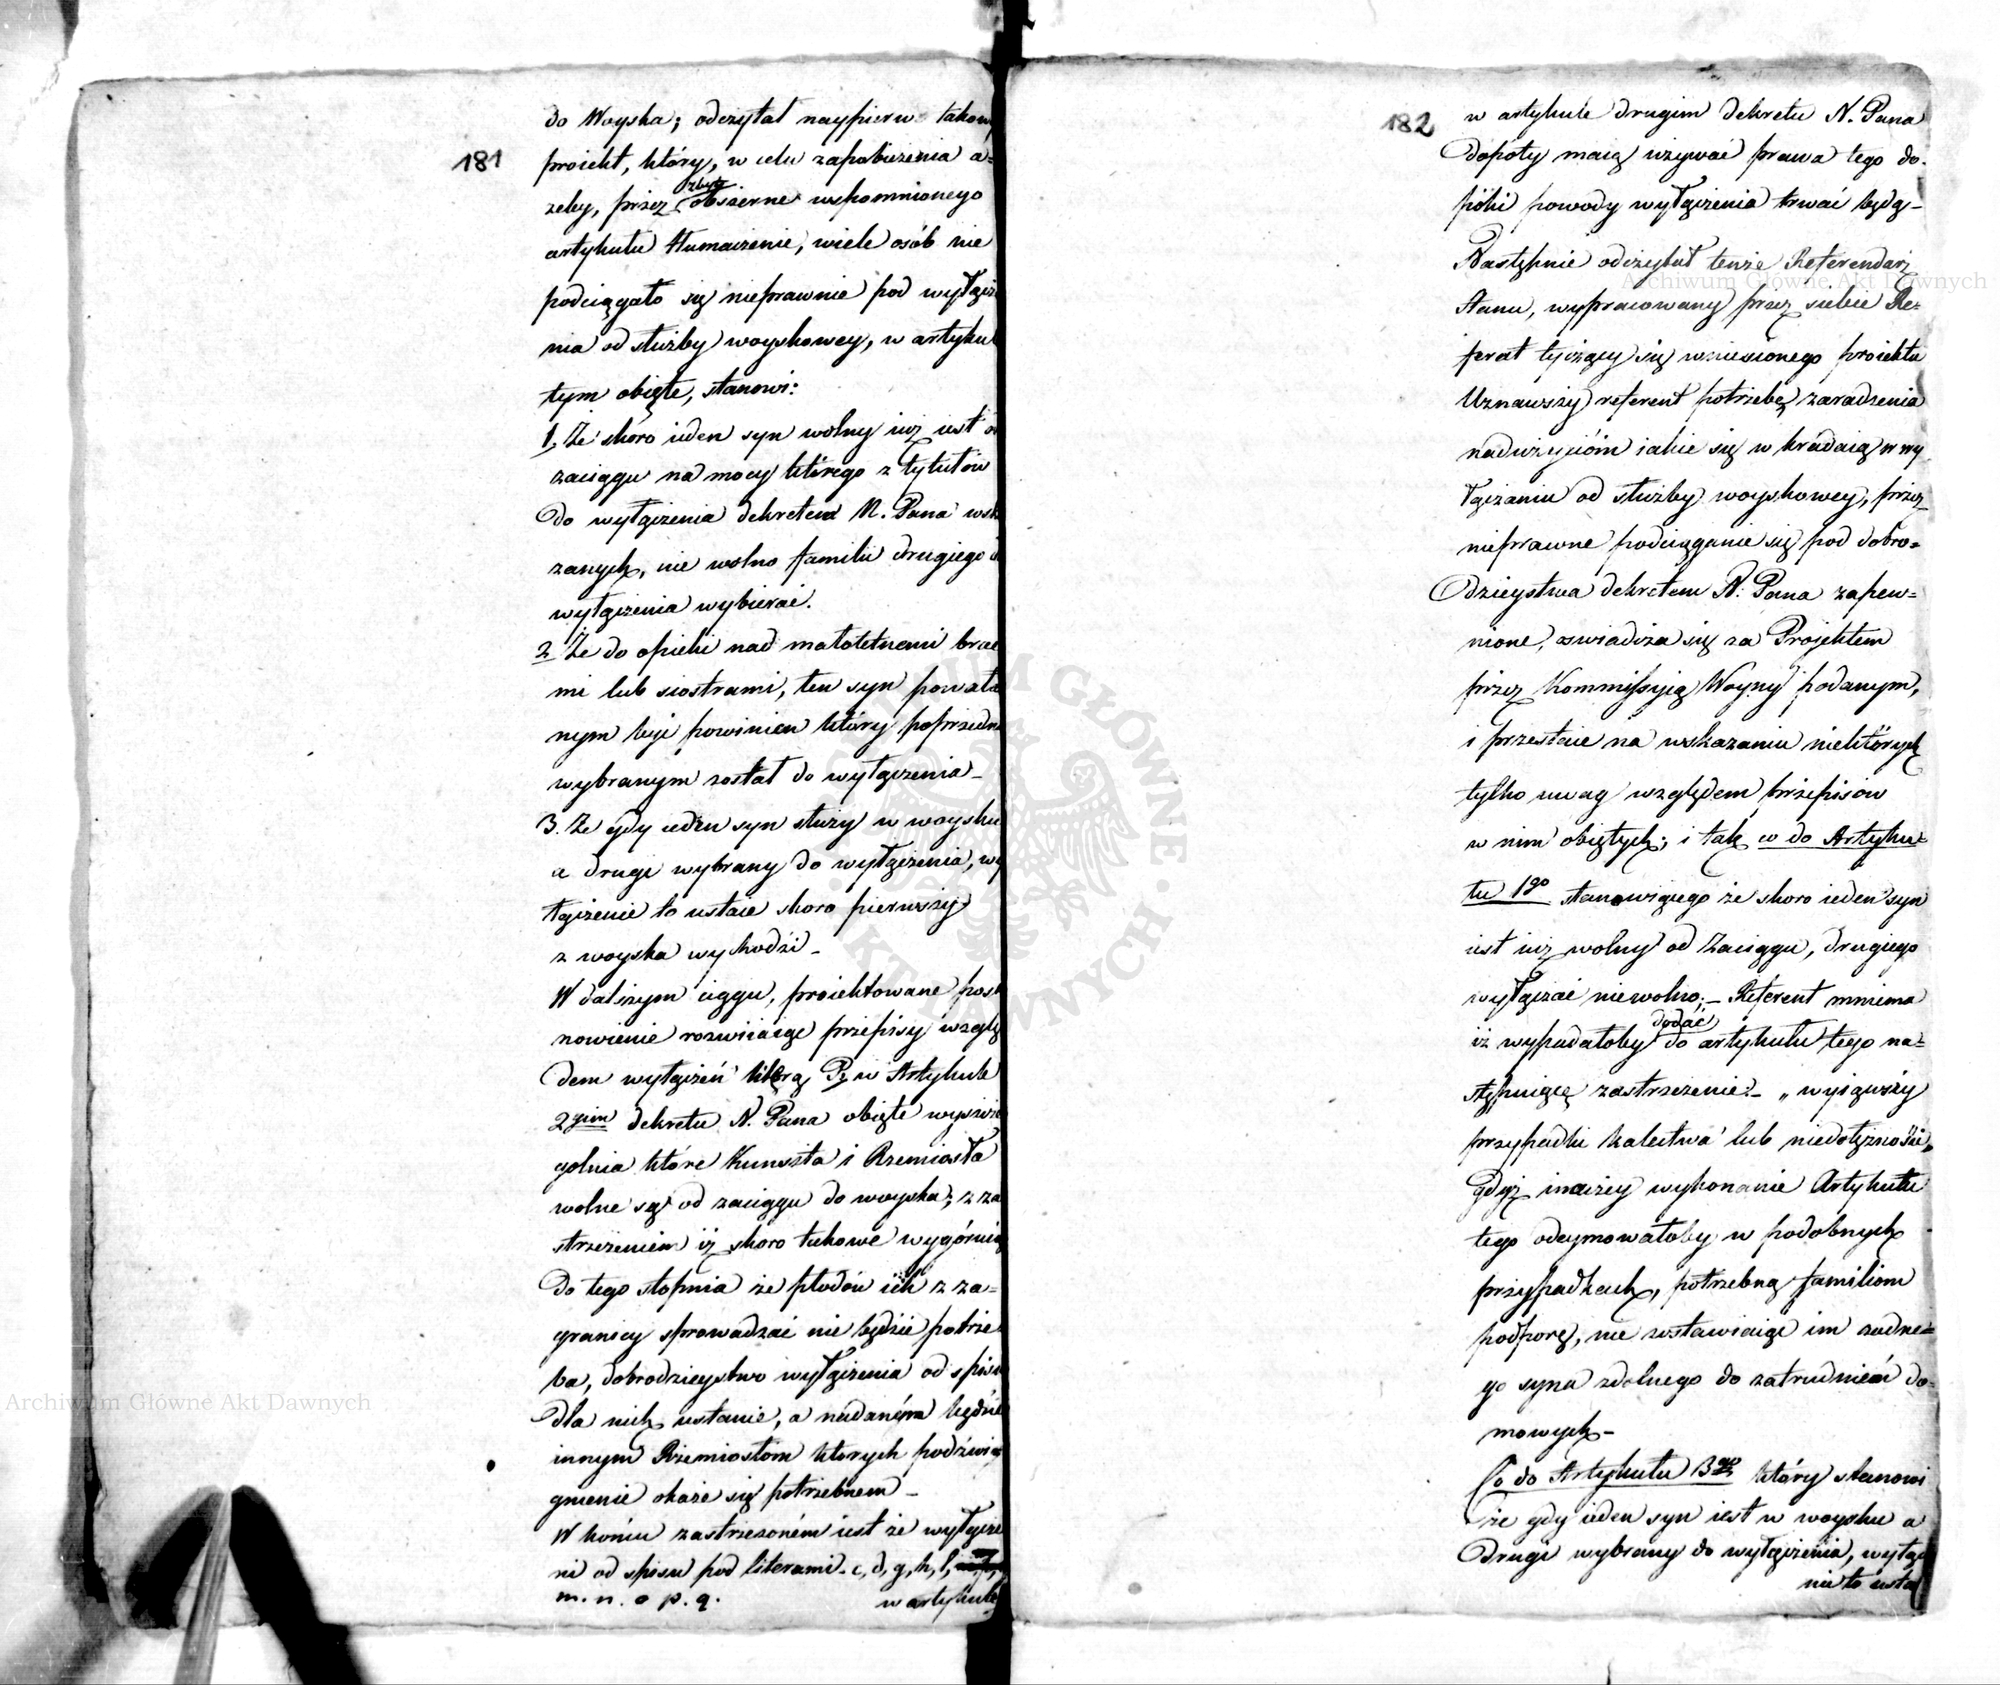 181
do Woyska; odczytał naypierw takow
proiekt, który, w celu zapobieżenia a=
żeby, przez zbyt obszerne wspomnionego
artykułu tłumaczenie, wiele osób nie
podciągało się nieprawnie pod wyłącze
nia od służby woyskowey, w artykul
tym obięte, stanowi:
1, Że skoro ieden syn wolny iuż iest o
zaciągu na mocy którego z tytułów
do wyłączenia dekretem N. Pana wsk
zanych, nie wolno familii drugiego d
wyłączenia wybierać.
2 Że do opieki nad małoletnemi brac
mi lub siostrami, ten syn powoła
nym być powinien który poprzedn
wybranym został do wyłączenia_
3. Że gdy ieden syn służy w woysku
a drugi wybrany do wyłączenia, wy
łączenie to ustaie skoro pierwszy
z woyska wychodzi_
W dalszym ciągu, proiektowane post
nowienie rozwiiaiąc przepisy wzglę
dem wyłączeń literą P, w Artykule
2gim dekretu N. Pana obięte wyszcze
gólnia które Kunszta i Rzemiosła
wolne są od zaciągu do woyska; z za
strzeżeniem iż skoro takowe wygórnią
do tego stopnia że płodów ich z za=
granicy sprowadzać nie będzie potrze
ba, dobrodzieystwo wyłączenia od spisu
dla nich ustanie, a nadaném będzie
innym Rzemiosłom których podźwi
gnienie okaże się potrzebnem_
W końcu zastrzeżoném iest że wyłącze
ni od spisu pod literami. c, d, g, h, l,
m. n. o p. q.
w artykule
182
w artykule drugim dekretu N. Pana
dopóty maią używać prawa tego do.
póki powody wyłączenia trwać będą_
Następnie odczytał tenże Referendarz
Stanu, wypracowany przez siebie Re=
ferat tyczący się wniesionego proiektu
Uznawszy referent potrzebę zaradzenia
nadużyciom iakie się wkradaią w wy
łączaniu od służby woyskowey, przez
nieprawne podciąganie się pod dobro=
dzieystwa dekretem N. Pana zapew=
nione, oświadcza się za Projektem
przez Kommissyią Woyny podanym,
i przestaie na wskazaniu niektórych
tylko uwag względem przepisów
w nim obiętych; i tak co do Artyku=
łu 1go stanowiącego że skoro ieden syn
iest iuż wolny od Zaciągu, drugiego
wyłączać niewolno; _ Referent mniema
iż wypadałoby dodać do artykułu tego na=
stępuiące zastrzeżenie: _ „ wyiąwszy
przypadki kalectwa lub niedołężności„
gdyż inaczey wykonanie Artykułu
tego odeymowałoby w podobnych
przypadkach, potrzebną familiom
podporę, nie zostawiaiąc im żadne=
go syna zdolnego do zatrudnień do=
mowych_
Co do Artykułu 3go który stanowi
że gdy ieden syn iest w woysku a
drugi wybrany do wyłączenia, wyłącz
nie to usta
Archiwum Główne Akt Dawnych
Archiwum Główne Akt Dawnych